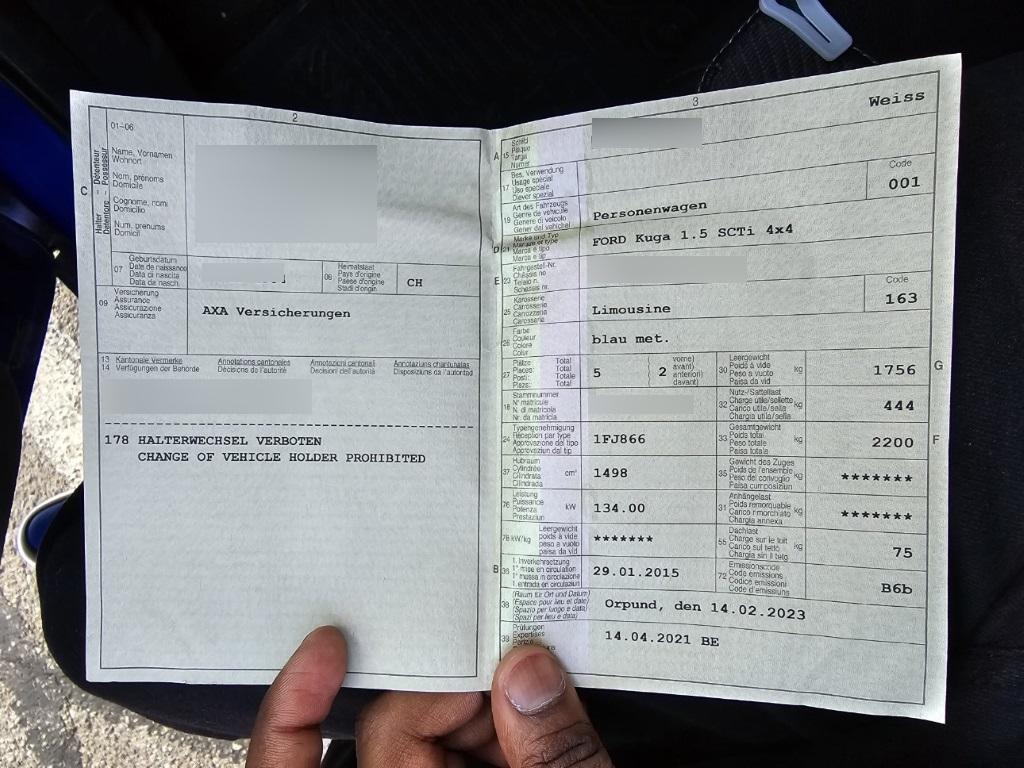 2
01-06
C
Halter - Détenteur
Detentore - Possessur
Name, Vornamen
Wohnort
Nom, prénoms
Domicile
Cognome, nomi
Domicilio
Num, prenums
Domicil
07
Geburtsdatum
Date de naissance
Data di nascita
Data da nasch.
08
Heimatstaat
Pays d'origine
Paese d'origine
Stadi d'origin
CH
09
Versicherung
Assurance
Assicurazione
Assicuranza
AXA Versicherungen
13
14
Kantonale Vermerke
Verfügungen der Behörde
Annotations cantonales
Décisions de l'autorité
Annotazioni cantonali
Decisioni dell'autorità
Annotaziuns chantunalas
Disposiziuns da l'autoritad
178 HALTERWECHSEL VERBOTEN
CHANGE OF VEHICLE HOLDER PROHIBITED
3
A 15
Schild
Plaque
Targa
Numer
Weiss
17
Bes. Verwendung
Usage spécial
Uso speciale
Diever spezial
19
Art des Fahrzeugs
Genre de véhicule
Genere di veicolo
Gener dal vehichel
Personenwagen
Code
001
D 21
Marke und Typ
Marque et type
Marca e tipo
Marca e tip
FORD Kuga 1.5 SCTi 4x4
E 23
Fahrgestell-Nr.
Châssis no
Telaio n.
Schassis nr.
25
Karosserie
Carrosserie
Carrozzeria
Carosseria
Limousine
Code
163
26
Farbe
Couleur
Colore
Colur
blau met.
27
Plätze: Total
Places: Total
Posti: Totale
Plazs: Total
5
( 2 vorne)
avant)
anteriori)
davant)
30
Leergewicht
Poids à vide
Peso a vuoto
Paisa da vid
kg
1756
G
18
Stammnummer
N° matricule
N. di matricola
Nr. da matricla
32
Nutz-/Sattellast
Charge utile/sellette
Carico utile/sella
Chargia utila/sella
kg
444
24
Typengenehmigung
Réception par type
Approvazione del tipo
Approvaziun dal tip
1FJ866
33
Gesamtgewicht
Poids total
Peso totale
Paisa totala
kg
2200
F
37
Hubraum
Cylindrée
Cilindrata
Cilindrada
cm³
1498
35
Gewicht des Zuges
Poids de l'ensemble
Peso del convoglio
Paisa cumposiziun
kg
*******
76
Leistung
Puissance
Potenza
Prestaziun
kW
134.00
31
Anhängelast
Poids remorquable
Carico rimorchiato
Chargia annexa
kg
*******
78 kW/kg
Leergewicht
poids à vide
peso a vuoto
paisa da vid
*******
55
Dachlast
Charge sur le toit
Carico sul tetto
Chargia sin il tetg
kg
75
B 36
1. Inverkehrsetzung
1re mise en circulation
1a messa in circolazione
1. entrada en circulaziun
29.01.2015
72
Emissionscode
Code émissions
Codice emissioni
Code d'emissiuns
B6b
38
(Raum für Ort und Datum)
(Espace pour lieu et date)
(Spazio per luogo e data)
(Spazi per lieu e data)
Orpund, den 14.02.2023
39
Prüfungen
Expertises
14.04.2021 BE